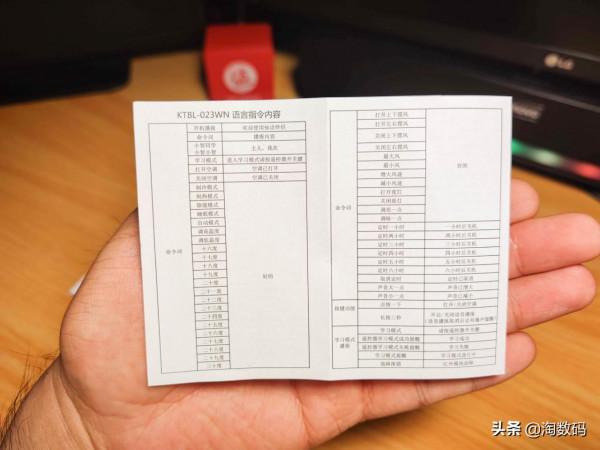 KTBL-023WN 语言指令内容
开机播报 欢迎使用
命令词 播报内容
小智同学
小智小智
主人，我在
学习模式 进入学习模式请按遥控器开关键
打开空调 空调已打开
关闭空调 空调已关闭
制冷模式
制热模式
除湿模式
睡眠模式
自动模式
调高温度
调低温度
十六度
十七度
十八度
十九度
二十度
二十一度
二十二度
二十三度
二十四度
二十五度
二十六度
二十七度
二十八度
二十九度
三十度
命令词
好的
打开上下摆风
打开左右摆风
关闭上下摆风
关闭左右摆风
最大风
最小风
增大风速
减小风速
打开夜灯
关闭夜灯
调亮一点
调暗一点
好的
命令词
定时一小时 一小时后关机
定时两小时 两小时后关机
定时三小时 三小时后关机
定时四小时 四小时后关机
定时五小时 五小时后关机
定时六小时 六小时后关机
取消定时 定时已取消
声音大一点 声音已增大
声音小一点 声音已减小
按键功能
点按一下 打开/关闭空调
长按三秒 开启/关闭语音播报
学习模式
播报
学习模式 请按遥控器开关键
遥控器学习模式成功提醒 学习成功
遥控器学习模式失败提醒 学习失败
学习模式提醒 学习模式进行中
LG
头条 @淘数码